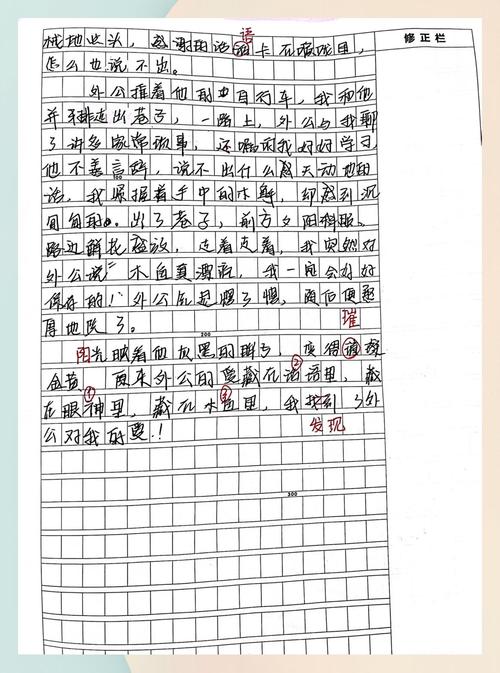 语
修正栏
械地点头，感谢的话语卡在喉咙里，
怎么也说不出。
外公推着他的自行车，我和他
并排走出巷子，一路上，外公与我聊
了许多家常琐事，还嘱咐我好好学习
他不善言辞，说不出什么感天动地的
100
话，我紧握着手中的木鱼，却感到沉
甸甸的。出了巷子，前方夕阳
路边鲜花，走着走着，我突然对
外公说“木鱼真漂亮，我一定会好好
保存的！外公先是愣了愣，随后便
厚地笑了。
200
璀
阳光映着他黑的，变得璨
金黄。原来外公的爱藏在②话语里，藏
在①眼神里，藏在③木鱼里，我找到了外
公对我的爱！
发现
300